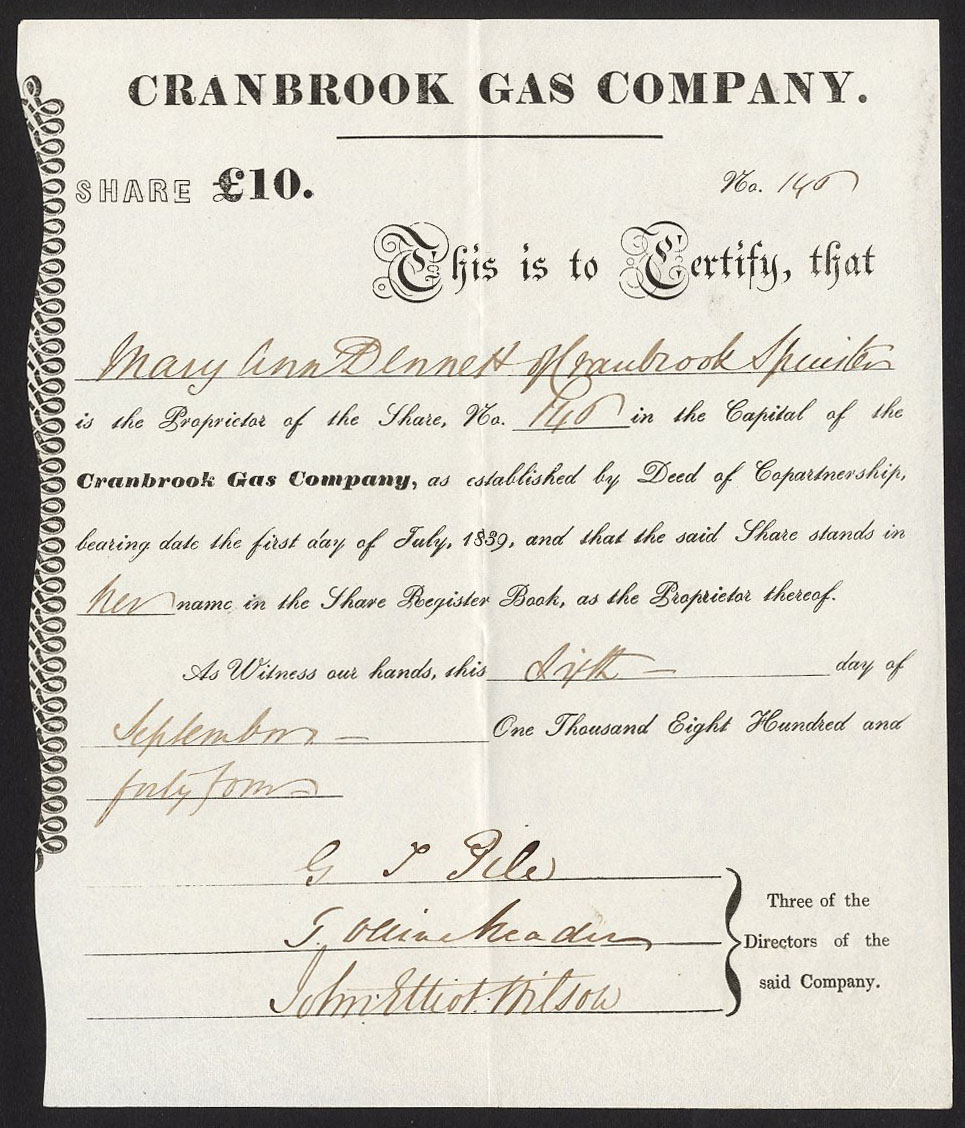 CRANBROOK GAS COMPANY.
SHARE £10.
No. 146
This is to Certify, that
Mary Ann Dennett of Cranbrook Spinster
is the Proprietor of the Share, No. 146 in the Capital of the
Cranbrook Gas Company, as established by Deed of Copartnership,
bearing date the first day of July, 1839, and that the said Share stands in
her name in the Share Register Book, as the Proprietor thereof.
As Witness our hands, this Sixth day of
September One Thousand Eight Hundred and
forty four
G T Pile
T.
John Elliot Wilson
Three of the
Directors of the
said Company.